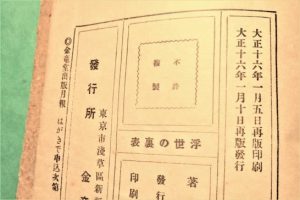 大正十六年一月五日再版印刷
大正十六年一月十日再版發行
不許
複製
浮世の裏表
著
發行
印刷
發行所
東京市淺草區新
金
金竜堂出版月報 はがきで申込次第